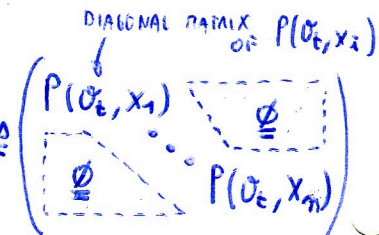 DIAGONAL MATRIX
OF P(σₜ, xᵢ)
P(σₜ, x₁)
∅
∅
P(σₜ, xₘ)